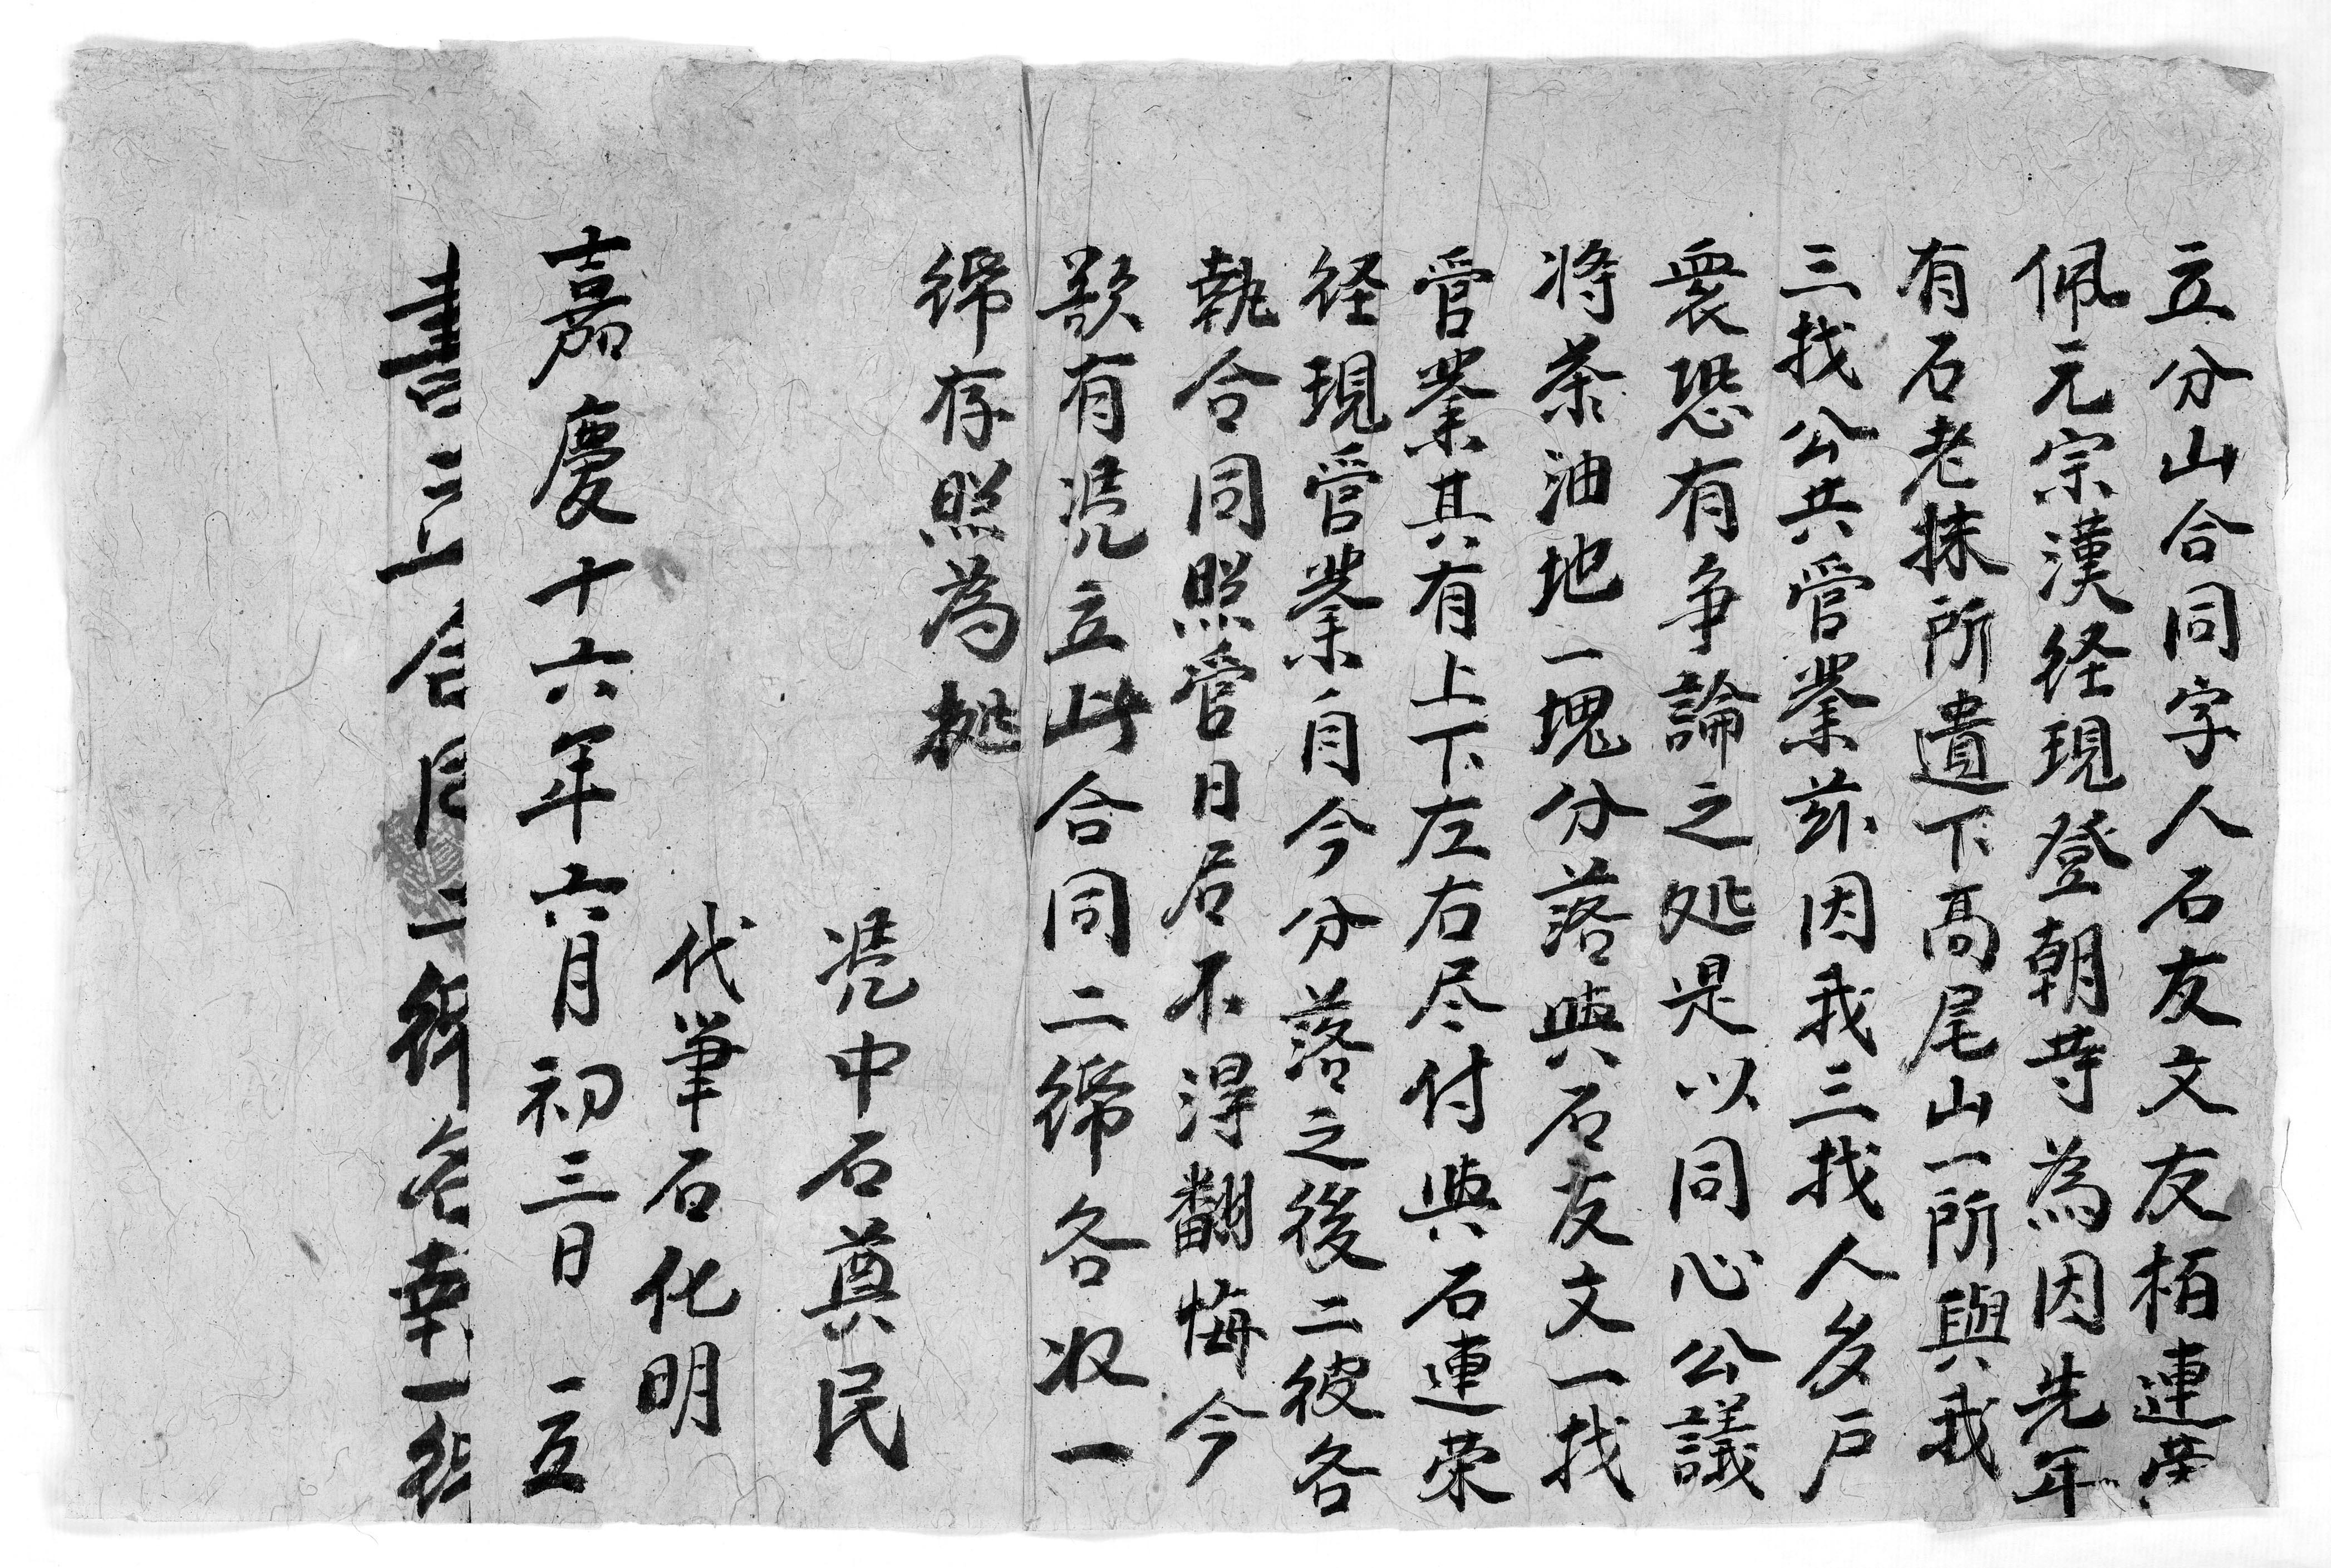 立分山合同字人石友文友栢連荣
佩元宗漢経現登朝等為因先年
有石老抹所遺下高尾山一所與我
三找公共管業茲因我三找人多戶
衆恐有争論之処是以同心公議
将茶油地一塊分落與石友文一找
管業其有上下左右尽付與石連荣
経現管業自今分落之後二彼各
執合同照管日后不得翻悔今
欲有凭立此合同二纸各收一
纸存照為拠
凭中石奠民
代筆石化明
嘉慶十六年六月初三日 立
立合同二纸各執一纸